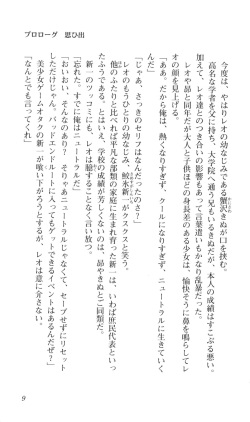 プロローグ　思ひ出
今度は、やはりレオの幼なじみである蟹沢きぬが口を挟む。
高名な学者を父に、大学院へ通う兄もいるきぬだが、本人の成績はすこぶる悪い。
加えて、レオ達とのつき合いの影響もあって言葉遣いもかなり乱暴だった。
レオや昴と同年だが大人と子供ほどの身長差のある少女は、愉快そうに鼻を鳴らしてレ
オの顔を見上げる。
「ああ。だから俺は、熱くなりすぎず、クールになりすぎず、ニュートラルに生きていく
んだ」
「じゃあ、さっきのセリフはなんだったのさ？」
レオのもうひとりの幼なじみ、鮫氷新一がクスクスと笑う。
他のふたりと比べれば平凡な部類の家庭に生まれ育った新一は、いわば庶民代表といっ
たふうである。とはいえ、学校の成績が芳しくないのは、昴やきぬとご同類だ。
新一のツッコミにも、レオは臆することなく言い放つ。
「忘れた。すでに俺はニュートラルだ」
「おいおい、そんなのあり？　そりゃあニュートラルじゃなくて、セーブせずにリセット
しただけじゃん。バッドエンドルートに入ってもゲットできるイベントはあるんだぜ？」
美少女ゲームオタクの新一が嘆い下がろうとするが、レオは意に介さない。
「なんとでも言え」
9